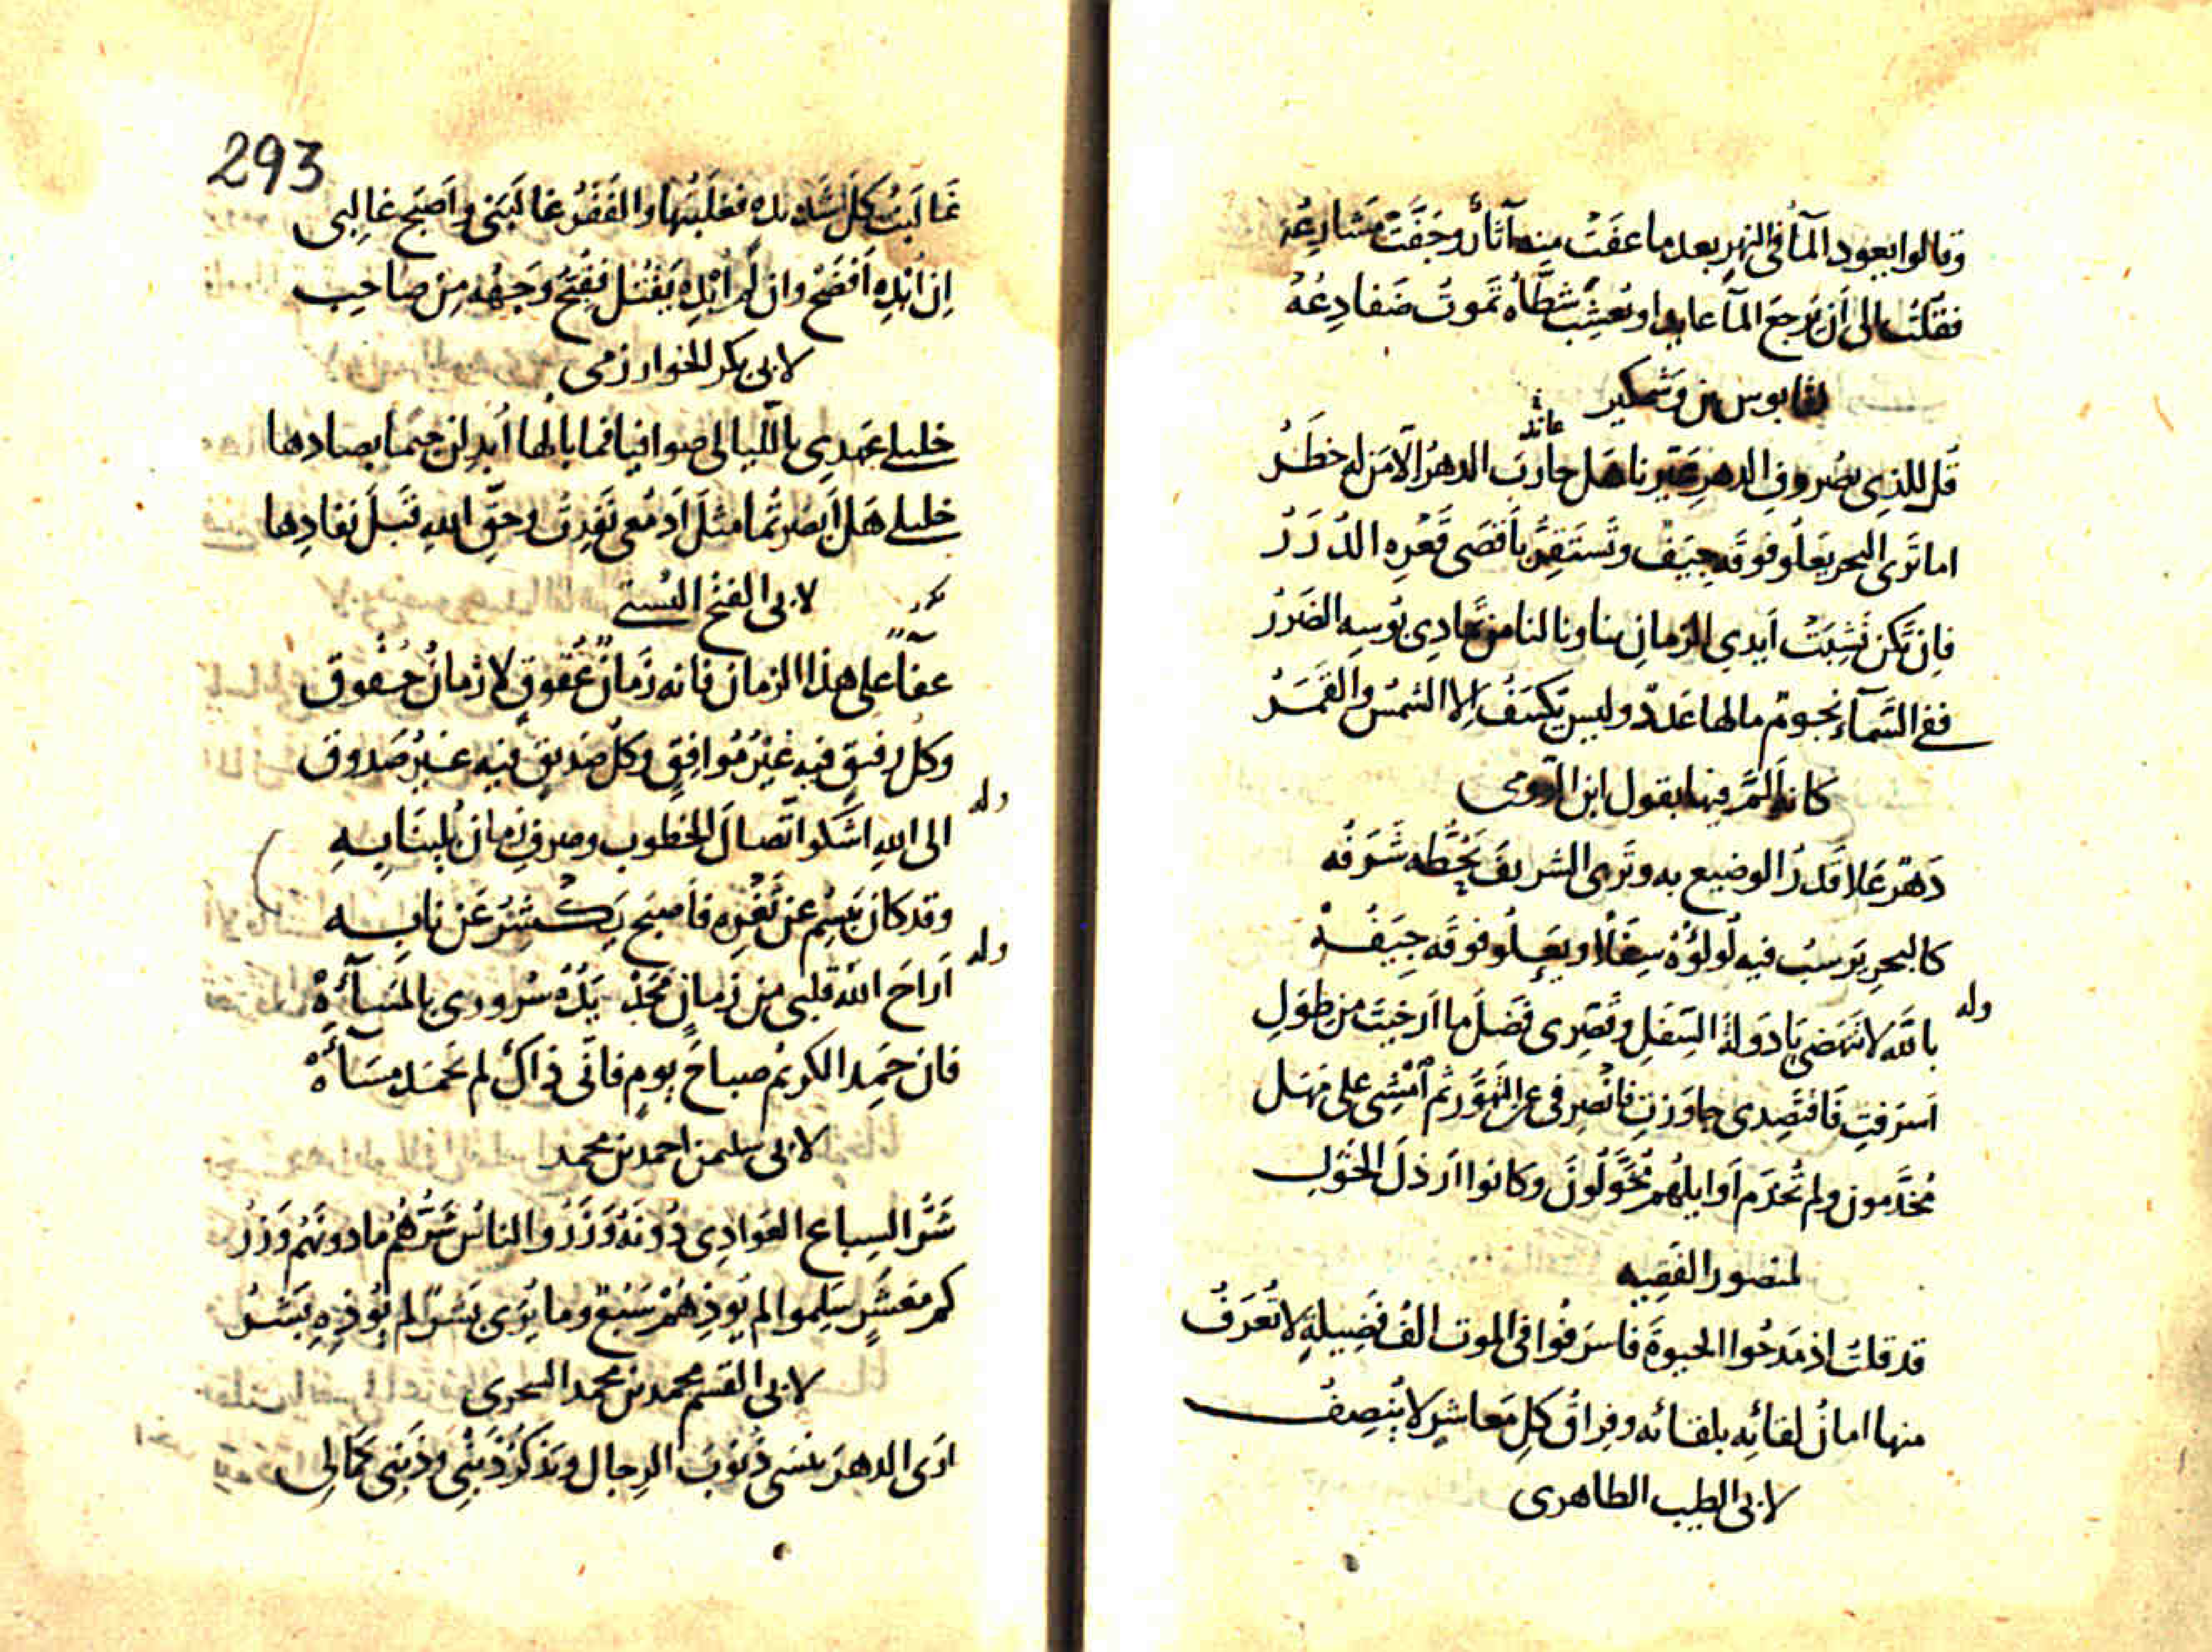 وقالوا يعود المآء فى النهر بعد ما عفت منه آثار وجفت مشارعه
فقلت الى أن يرجع المآء عايدا وتعشب شطاه تموت ضفادعه
لقابوس بن وشمكير
عاند
قل للذى بصروف الدهر عيرنا هل حارب الدهر الا من له خطر
اما ترى البحر يعلو فوقه جيف وتستقر باقصى قعره الدرر
فان تكن نشبت أيدي الزمان بنا ونالنا من تمادى بوسه الضرر
ففى السمآء نجوم مالها عدد وليس يكسف الا الشمس والقمر
كانه الم فيها بقول ابن الرومى
دهر علا قدر الوضيع به وترى الشريف يحطه شرفه
كالبحر يرسب فيه لولوه سفلا ويعلو فوقه جيفه
وله
بالله لا تنهضى يا دولة السفل وقصرى فضل ما ارخيت من طول
اسرفت فاقتصدى جاوزت فانصرفى عن التهور ثم امشى على مهل
مخدمون ولم تخدم اوايلهم مخولون وكانوا ارذل الخول
لمنصور الفقيه
قد قلت اذ مدحوا الحيوة فاسرفوا فى الموت الف فضيلة لا تعرف
منها امان لقائه بلقائه وفراق كل معاشر لا ينصف
لابى الطيب الطاهرى
293
غالبت كل شديدة فغلبتها والفقر غالبنى واصبح غالبى
ان ابده افضح وان لم ابده يقتل فقبح وجهه من صاحب
لابى بكر الخوارزمى
خليلى عهدى بالليالى صوافيا فما بالها ابدلن جيما بصادها
خليلى هل أبصرتما مثل ادمعى نفدت وحق الله قبل نفادها
لابى الفتح البستى
عفآء على هذا الزمان فانه زمان عقوق لا زمان حقوق
وكل رفيق فيه غير موافق وكل صديق فيه غير صدوق
وله
الى الله اشكو اتصال الخطوب وصرف زمان بلينا به
وقد كان يبسم عن ثغره فاصبح يكشر عن نابه
وله
اراح الله قلبى من زمان محت يده سرورى بالمسآءة
فان حمد الكريم صباح يوم فانى ذاك لم احمد مسآءه
لابى سليمن احمد بن محمد
شر السباع العوادى دونه وزر والناس شرهم مادونهم وزر
كم معشر سلموا لم يوذهم سبع وما يرى بشر لم يوذه بشر
لابى القسم محمد بن محمد السحرى
ارى الدهر ينسى ذنوب الرجال ويذكر ذنبى وذنبى كمالى